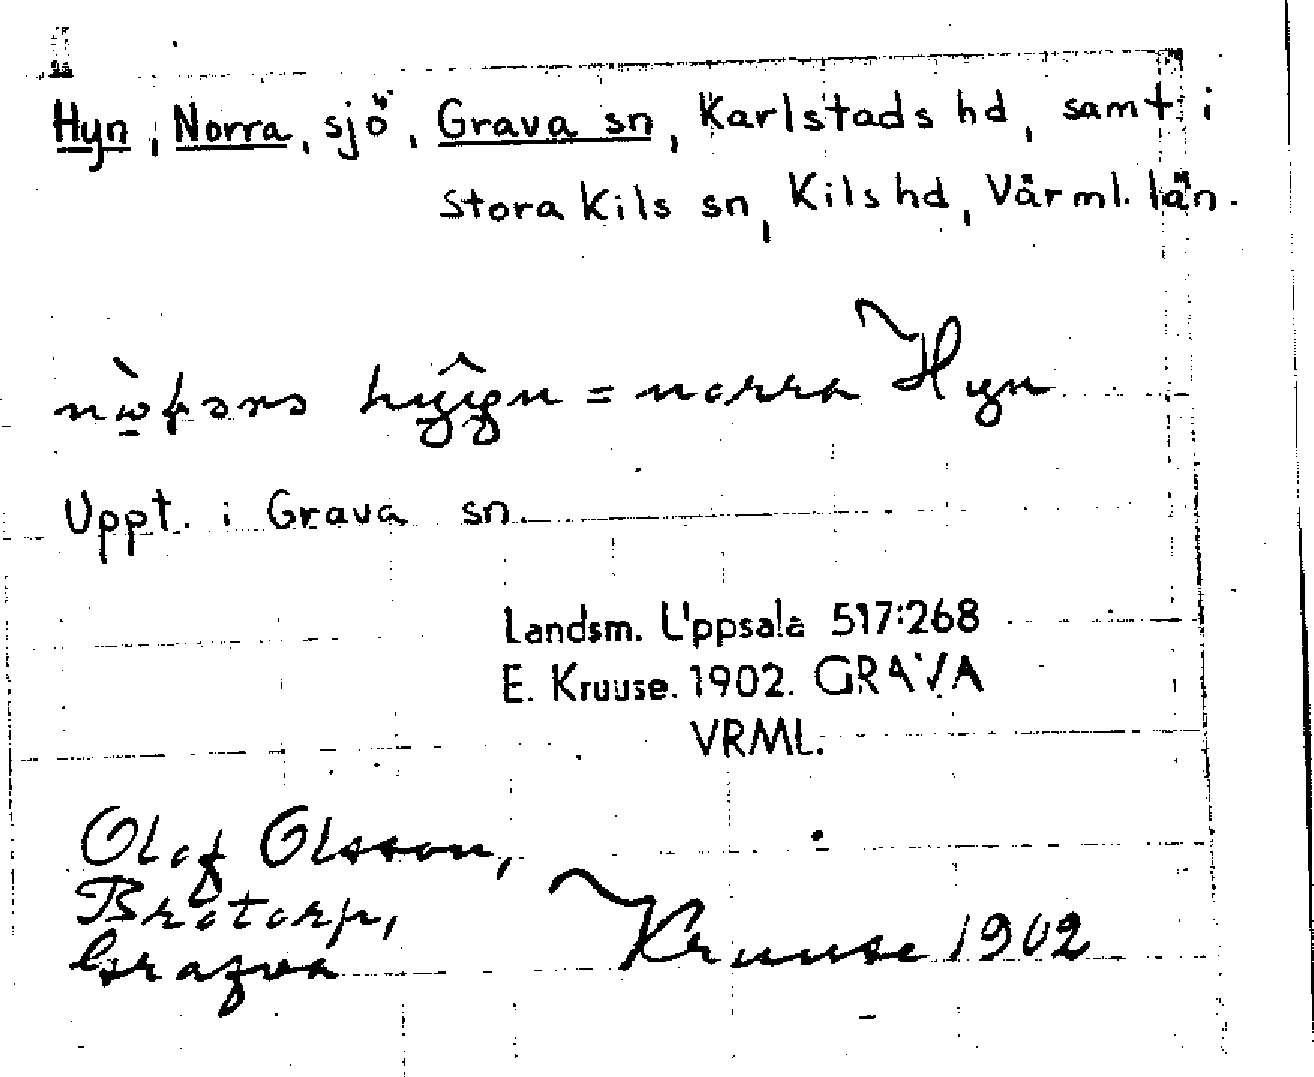 Hyn, Norra, sjö, Grava sn, Karlstads hd, samt i
Stora Kils sn, Kils hd, Värml. län.
= norra Hyn
Uppt. i Grava sn.
Landsm. Uppsala 517:268
E. Kruuse. 1902. GRAVA
VRML.
Olof Olsson,
Brotorp,
Grafva
Kruuse 1902